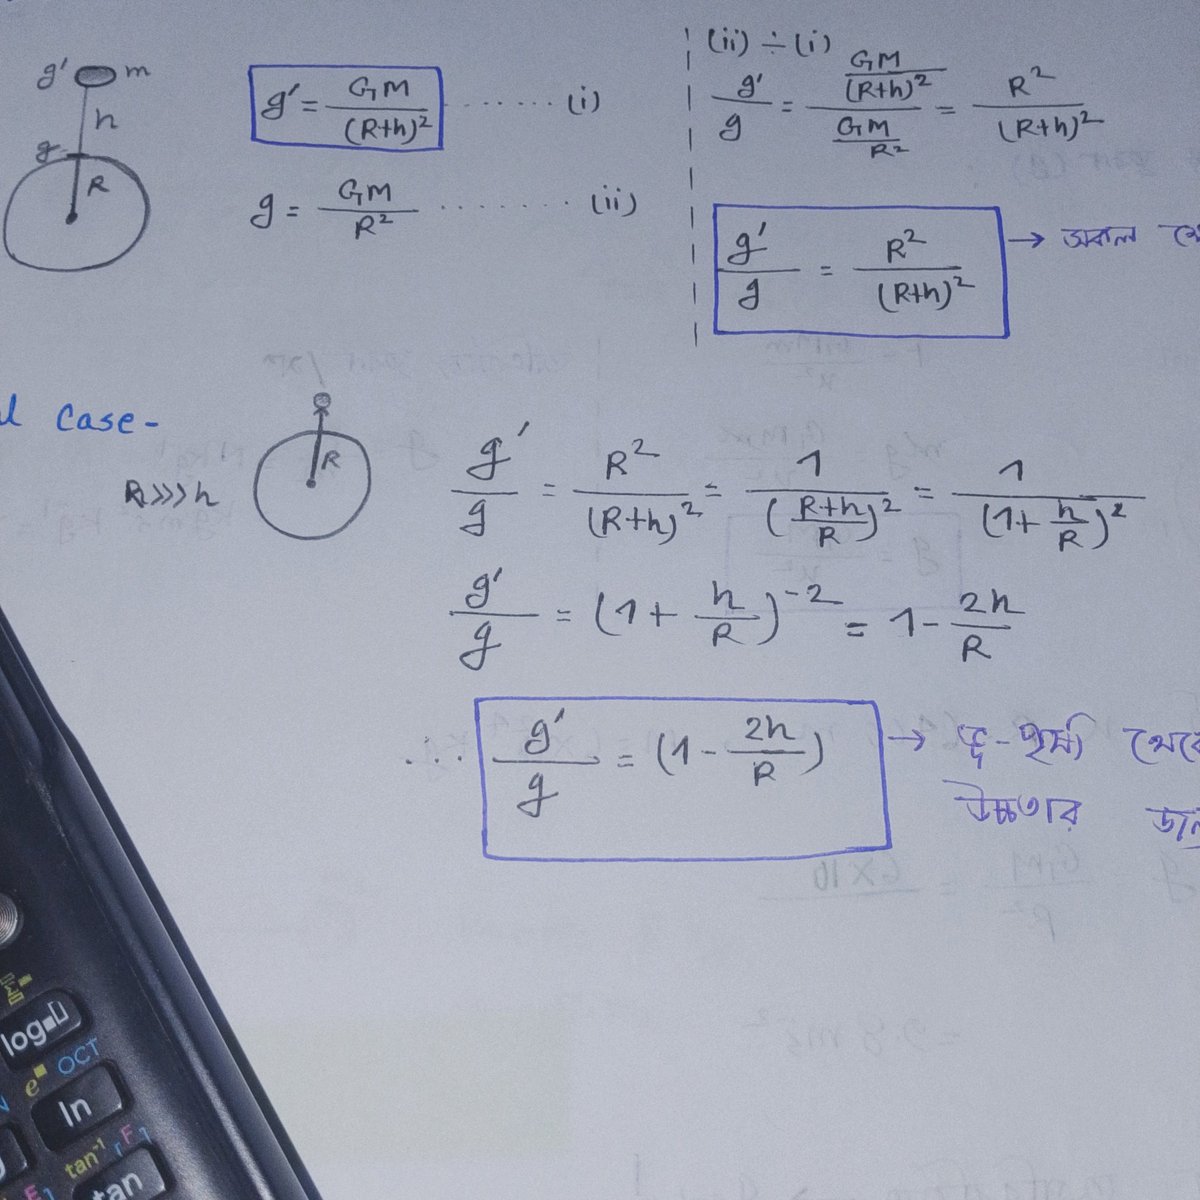 g' m
h
g
R
g' = GM/(R+h)² ....... (i)
g = GM/R² ....... (ii)
(ii) ÷ (i)
g'/g = (GM/(R+h)²)/(GM/R²) = R²/(R+h)²
g'/g = R²/(R+h)² →
Case -
R >>> h
R
g'/g = R²/(R+h)² = 1/((R+h)/R)² = 1/(1+h/R)²
g'/g = (1 + h/R)⁻² = 1 - 2h/R
... g'/g = (1 - 2h/R) → ভূ-পৃষ্ঠ থেকে
উচ্চতার
log
eˣ OCT
ln
tan⁻¹ F
tan